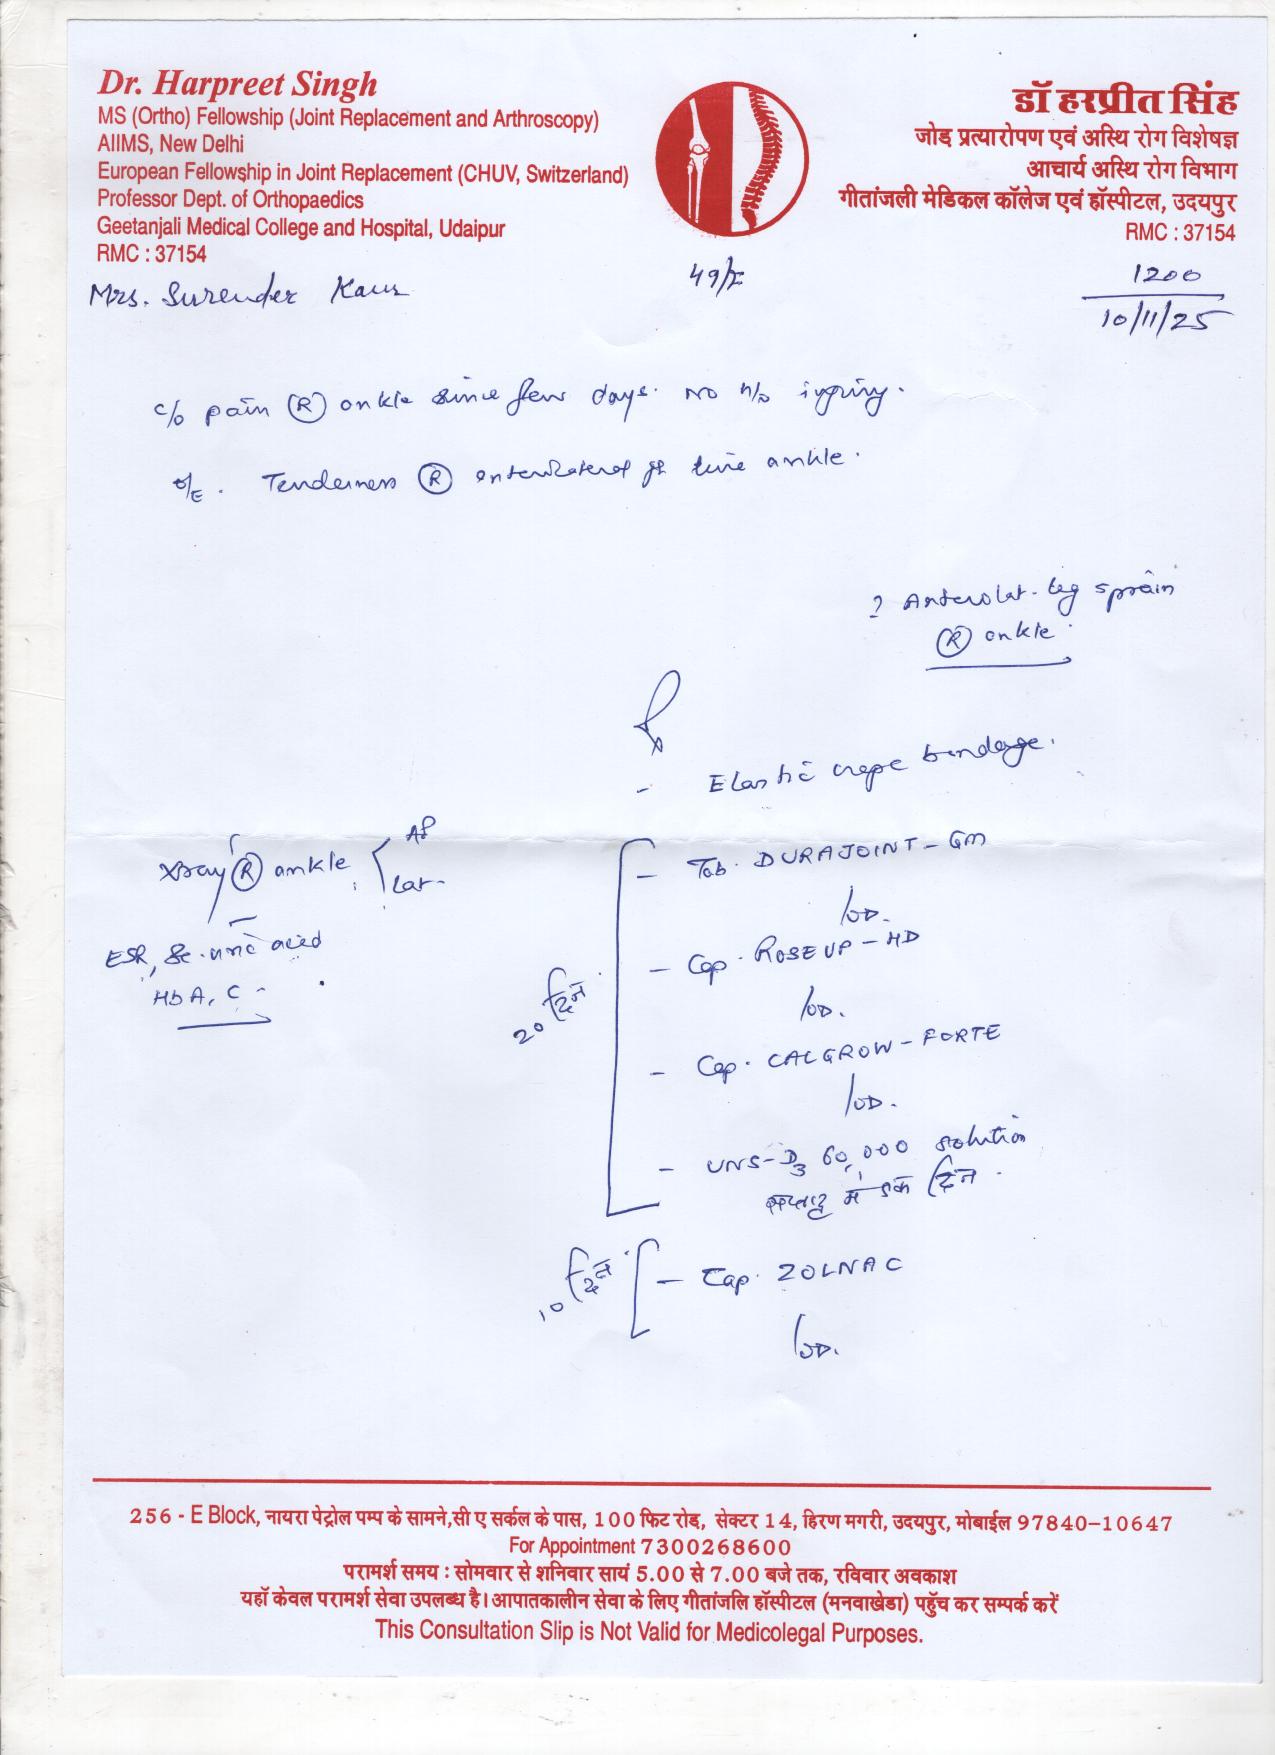 Dr. Harpreet Singh
MS (Ortho) Fellowship (Joint Replacement and Arthroscopy)
AIIMS, New Delhi
European Fellowship in Joint Replacement (CHUV, Switzerland)
Professor Dept. of Orthopaedics
Geetanjali Medical College and Hospital, Udaipur
RMC : 37154
डॉ हरप्रीत सिंह
जोड प्रत्यारोपण एवं अस्थि रोग विशेषज्ञ
आचार्य अस्थि रोग विभाग
गीतांजली मेडिकल कॉलेज एवं हॉस्पीटल, उदयपुर
RMC : 37154
Mrs. Surender Kaur
49/F
1200
10/11/25
c/o pain (R) ankle since few days. No h/o injury.
o/E. Tenderness (R) anterolateral line ankle.
? Anterolat. leg sprain
(R) ankle
- Elastic crepe bandage.
Xray (R) ankle AP
Lat.
ESR, Sc. uric acid
HbA1C
20 दिन
- Tab. DURAJOINT-GM
1 OD.
- Cap. ROSEUP-HD
1 OD.
- Cap. CALGROW-FORTE
1 OD.
- UNS-D3 60,000 solution
सप्ताह में एक दिन.
10 दिन
- Cap. ZOLNAC
1 OD.
256 - E Block, नायरा पेट्रोल पम्प के सामने,सी ए सर्कल के पास, 100 फिट रोड, सेक्टर 14, हिरण मगरी, उदयपुर, मोबाईल 97840-10647
For Appointment 7300268600
परामर्श समय : सोमवार से शनिवार सायं 5.00 से 7.00 बजे तक, रविवार अवकाश
यहाँ केवल परामर्श सेवा उपलब्ध है। आपातकालीन सेवा के लिए गीतांजलि हॉस्पीटल (मनवाखेडा) पहुँच कर सम्पर्क करें
This Consultation Slip is Not Valid for Medicolegal Purposes.